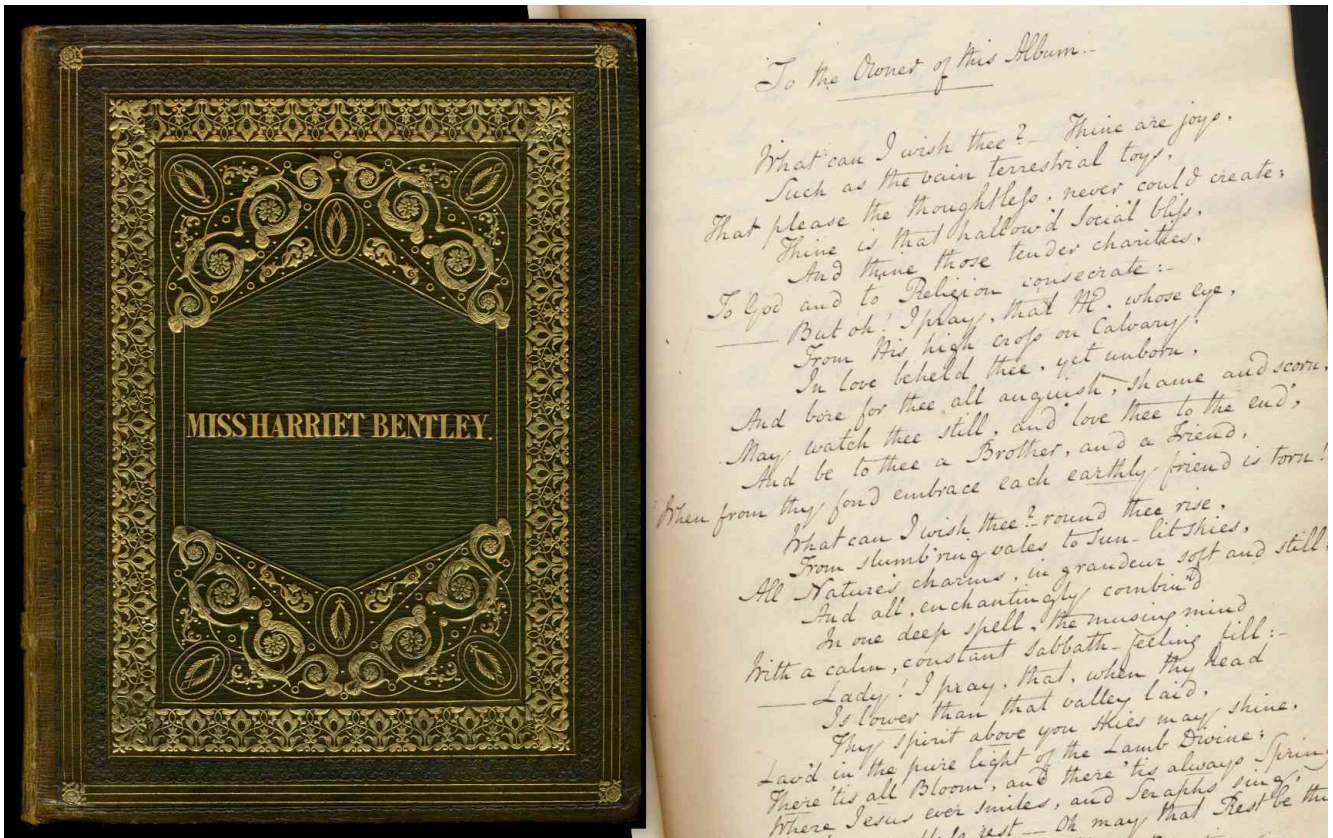 MISS HARRIET BENTLEY.
To the Owner of this Album.-
What can I wish thee? - Thine are joys,
Such as the vain terrestrial toys,
That please the thoughtless, never could create;
Thine is that hallow'd Social bliss,
And thine those tender charities,
To God and to Religion consecrate:-
But oh! I pray, that HE, whose eye,
From His high cross on Calvary,
In love beheld thee, yet unborn,
And bore for thee all anguish, shame and scorn,
May watch thee still, and love thee to the end,
And be to thee a Brother, and a Friend,
When from thy fond embrace each earthly friend is torn!
What can I wish thee? - round thee rise,
From slumb'ring vales to Sun-lit skies,
All Nature's charms, in grandeur soft and still:
And all, enchantingly combin'd
In one deep spell, the musing mind
With a calm, constant Sabbath-feeling fill:-
Lady! I pray, that, when thy head
Is lower than that valley laid,
Thy spirit above yon skies may shine,
Lav'd in the pure light of the Lamb Divine;
There 'tis all Bloom, and there 'tis always Spring
Where Jesus ever smiles, and Seraphs sing,
rest - Oh may that Rest be